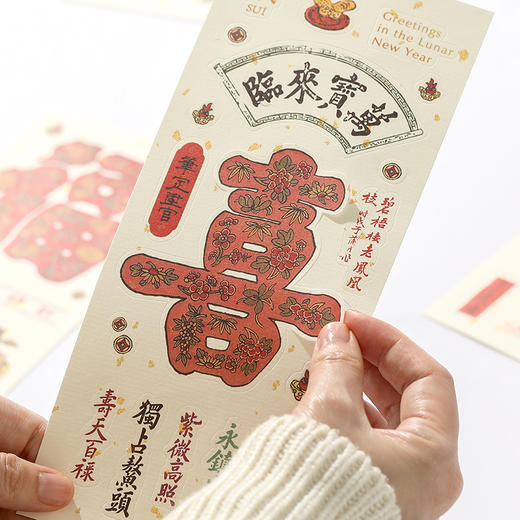 SUI
Greetings
in the Lunar
New Year
萬寶來臨
喜
碧梧棲老鳳凰
枝
永鎮
紫微高照
獨占鰲頭
壽天百禄